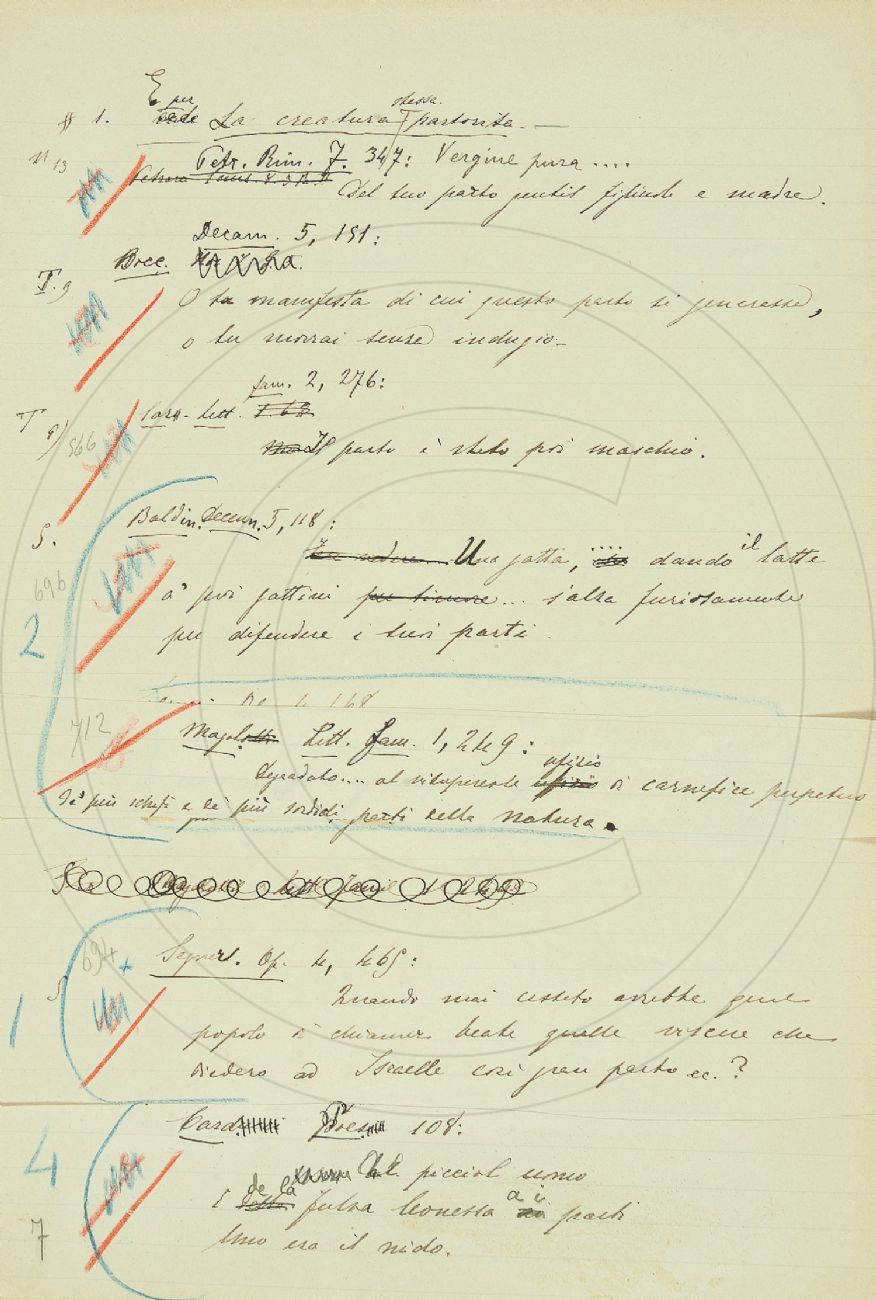 E per
§ 1. La creatura stessa partorita. —
N 13 Petr. Rim. 7. 347: Vergine pura ....
Del tuo parto gentil figliuola e madre.
T. 9 Bocc. Decam. 5, 151:
O tu manifesta di cui questo parto si generasse,
o tu morrai senza indugio –
T 9) 566 Caro Lett. fam. 2, 276:
Il parto è stato poi maschio.
S. Baldin. Decenn. 5, 118:
Una gatta, .... dando il latte
696
a' suoi gattini ... s'alza furiosamente
2 per difendere i suoi parti
712 Magal. Lett. fam. 1, 249:
Degradato .... al vituperante ufizio di carnefice perpetuo
de' più schifi e de' più sordidi parti della natura.
694 + Segner. Op. 4, 465:
1 S Quando mai cessato avrebbe quel
popolo di chiamar beate quelle viscere che
diedero ad Israelle così gran parto ec.?
Card. 108:
4 picciol uomo
E de la fulva leonessa a i parti
7 Uno era il nido.